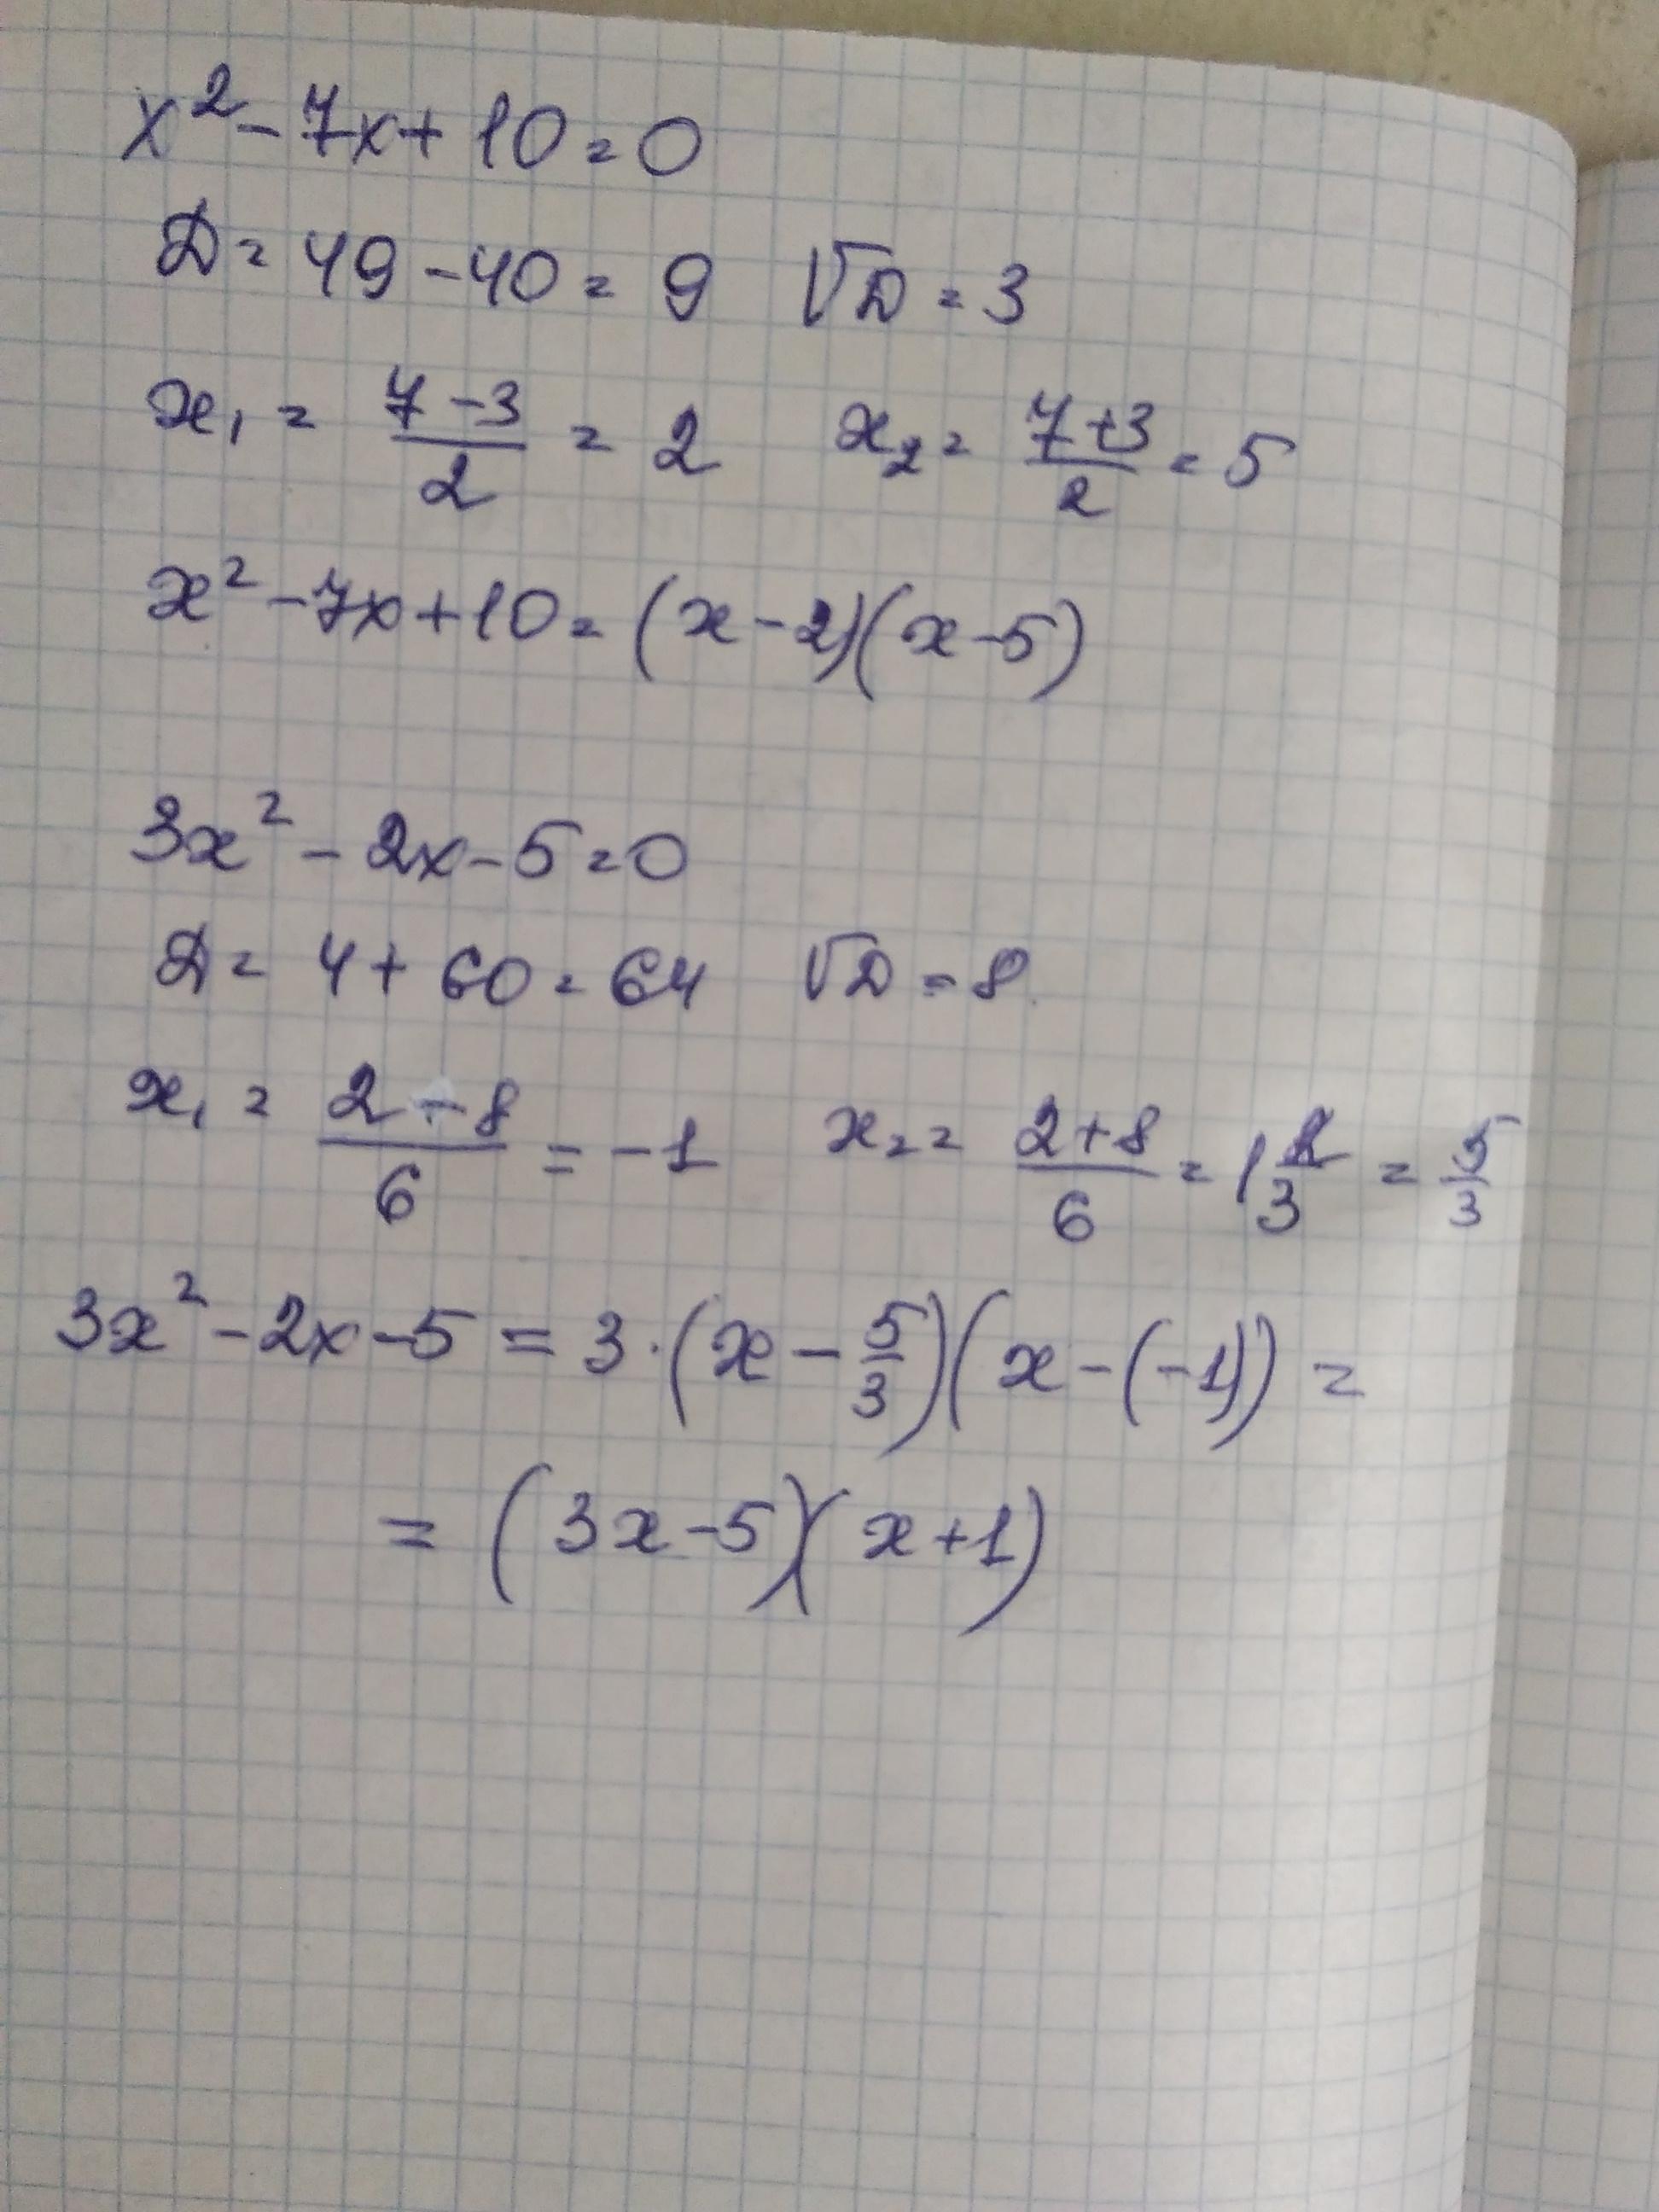 x² - 7x + 10 = 0
D = 49 - 40 = 9 √D = 3
x₁ = (7 - 3)/2 = 2 x₂ = (7 + 3)/2 = 5
x² - 7x + 10 = (x - 2)(x - 5)
3x² - 2x - 5 = 0
D = 4 + 60 = 64 √D = 8
x₁ = (2 - 8)/6 = -1 x₂ = (2 + 8)/6 = 1 2/3 = 5/3
3x² - 2x - 5 = 3·(x - 5/3)(x - (-1)) =
= (3x - 5)(x + 1)